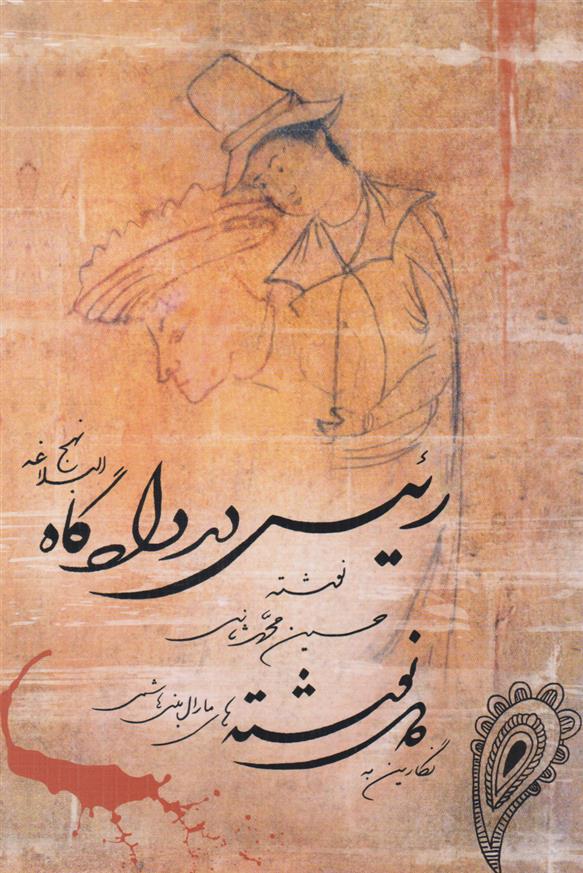 رئیس در دادگاه
نهج
البلاغه
نوشته
حسین
نگارین به
نوشته های مارال بنی هاشمی